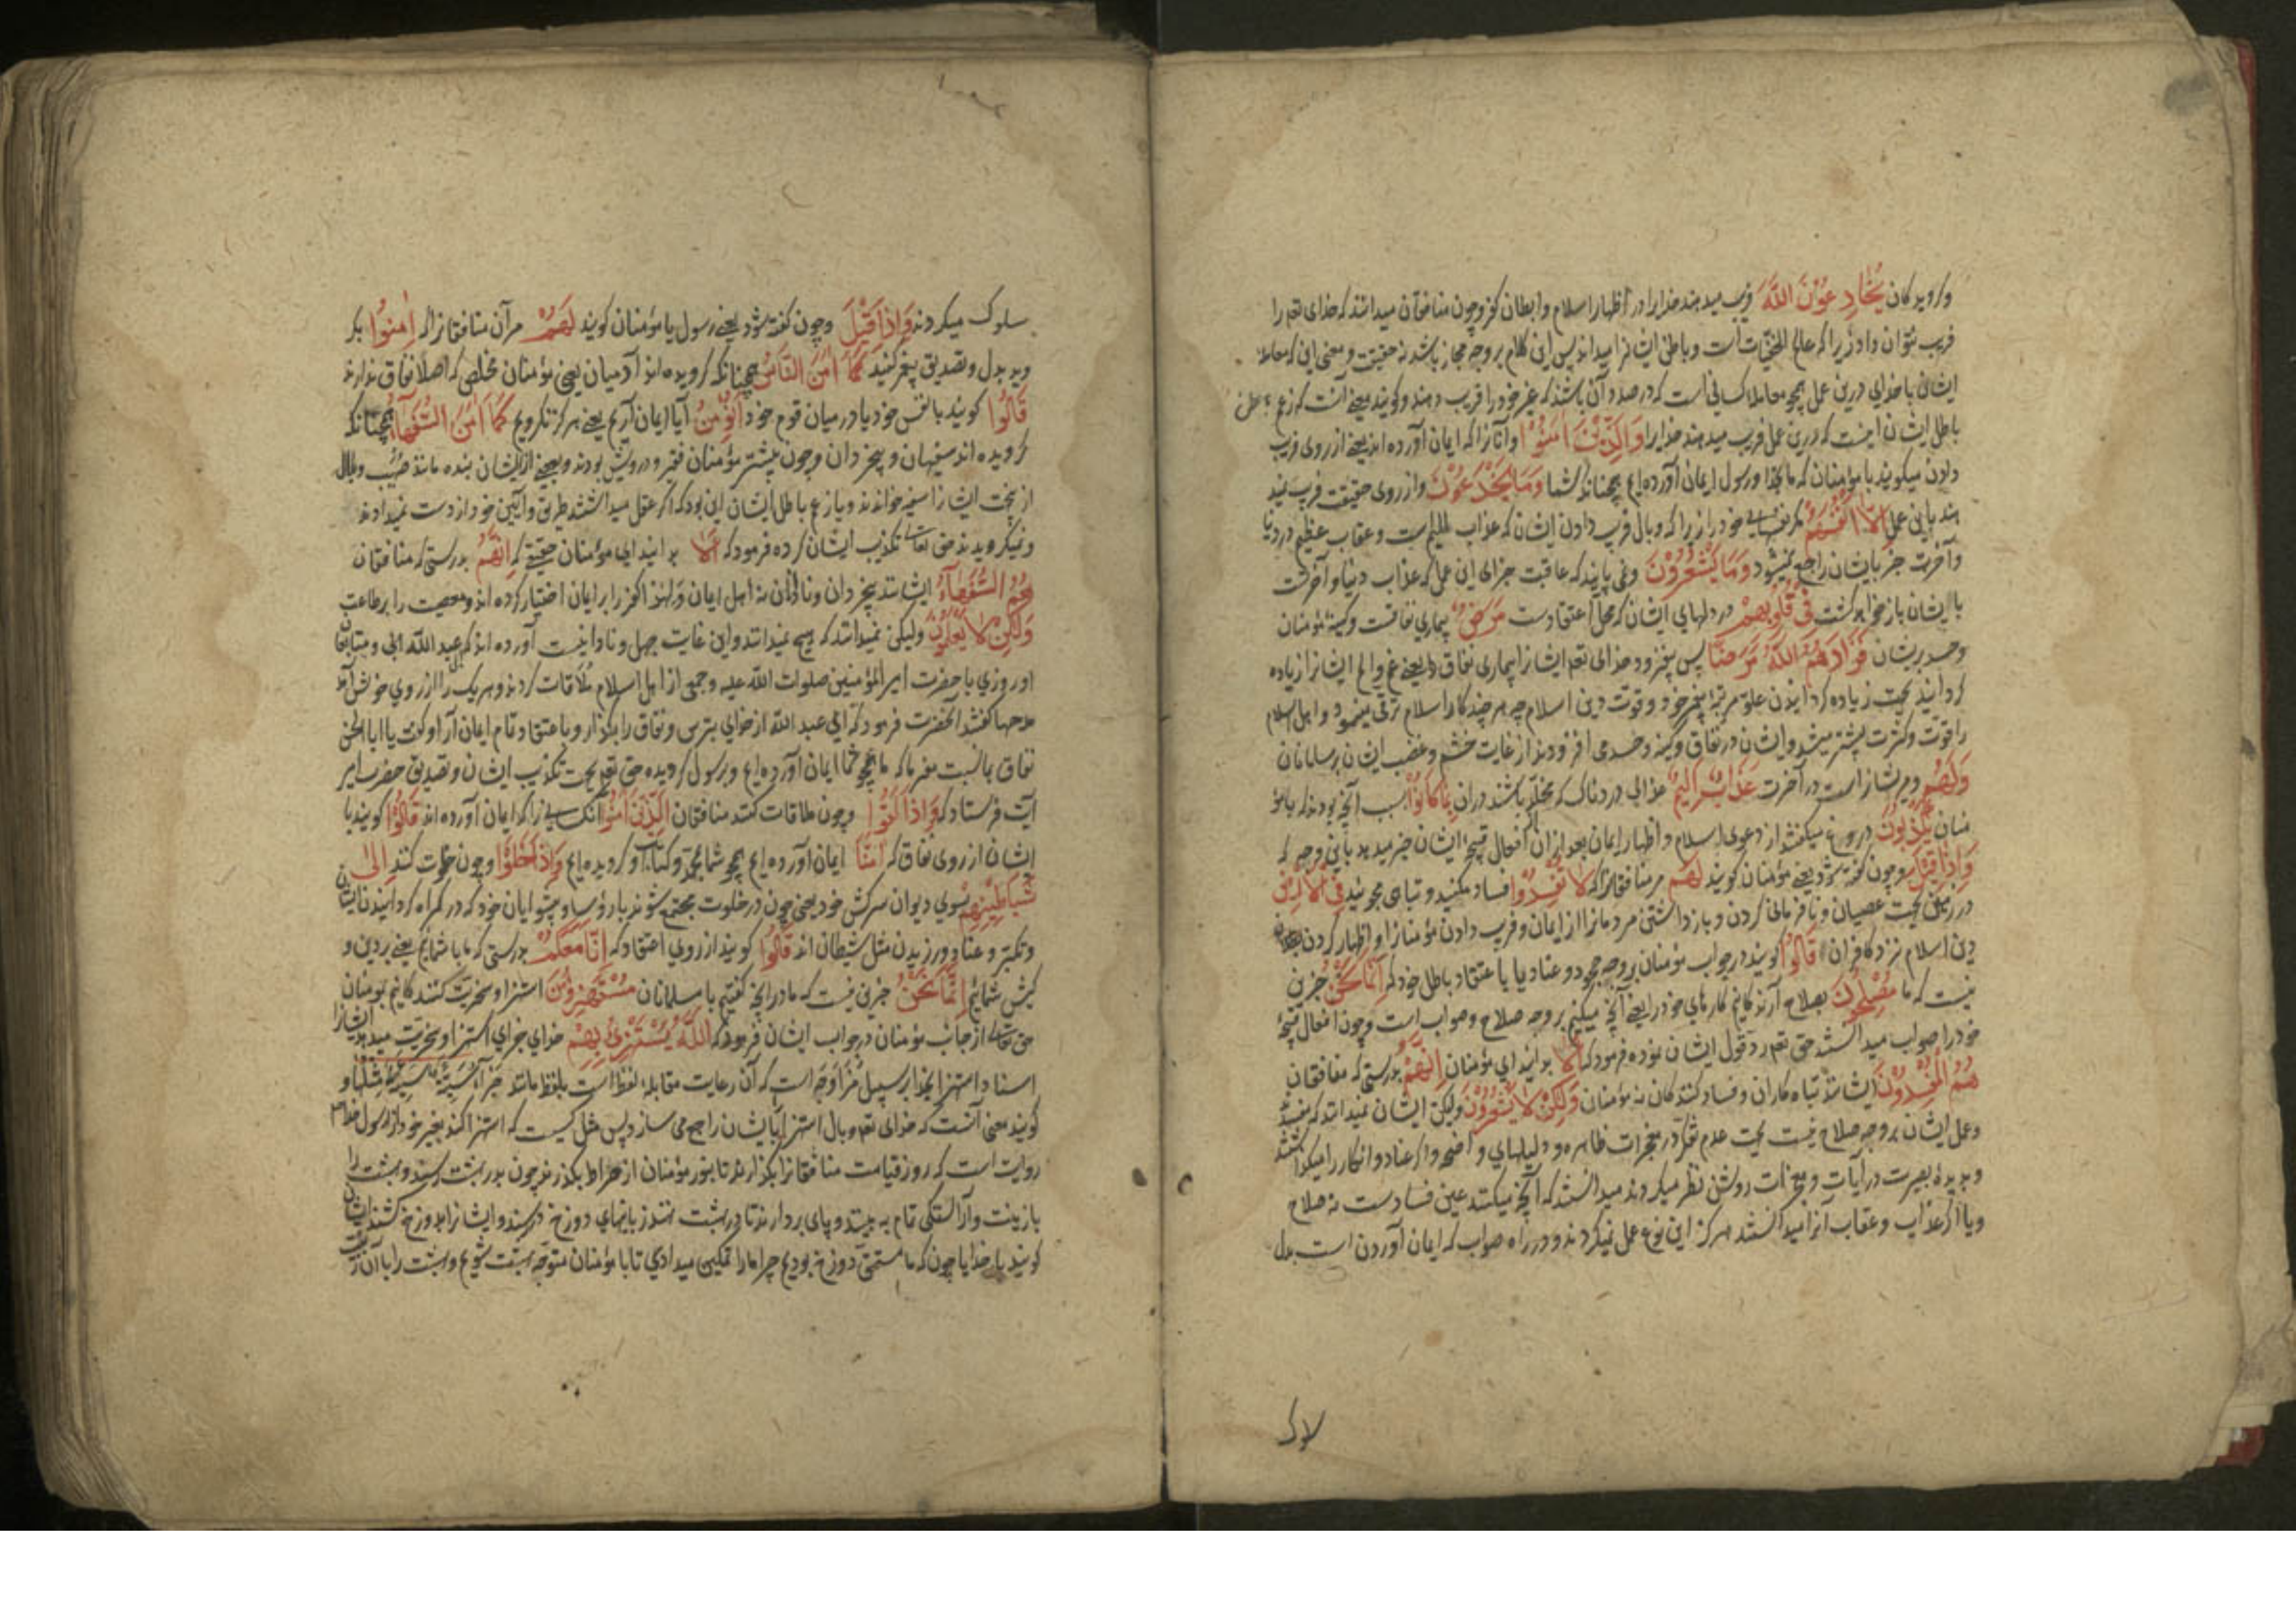 وکرویدکان یُخَادِعُوْنَ اللّٰهَ فریب میدهند خدارا در اظهار اسلام و ابطان کفر و چون منافقان میدانند که خدای تعه را
فریب نتوان داد زیرا که عالم الخفیّات است و باطن ایشانرا میداند پس این کلام بر وجه مجاز باشد نه حقیقت و معنی این که معامله
ایشان با خدای درین عمل همچو معامله کسانی است که در صدد آن باشند که غیر خود را فریب دهند و کویند یعنے آنست که زعم
باطل ایشان اینست که درین عمل فریب میدهند خدایرا وَالَّذِیْنَ اٰمَنُوْا وانانرا که ایمان آورده اند یعنے از روی فریب
دادن میکویند با مؤمنان که ما بخدا و رسول ایمان آورده ایم همچنانکه شما وَمَا یَخْدَعُوْنَ و از روی حقیقت فریب نمید
هند باین عمل اِلَّا اَنْفُسَهُمْ مکر نفسهای خود را زیرا که وبال فریب دادن ایشان که عذاب الیم است و عقاب عظیم در دنیا
وآخرت جز بایشان راجع نمیشود وَمَا یَشْعُرُوْنَ ونمی یابند که عاقبت جزای این عمل که عذاب دنیا و آخرتست
باایشان باز خواهد کشت فِیْ قُلُوْبِهِمْ در دلهای ایشان که محل اعتقادست مَرَضٌ بیماری نفاقست و کینه مؤمنان
وحسد بریشان فَزَادَهُمُ اللّٰهُ مَرَضًا پس بیفزود خدای تعه ایشانرا بیماری نفاق یعنے غم و الم ایشانرا زیاده
کردانید بجهت زیاده کردانیدن علوّ مرتبهٔ پیغمبر خود و قوت دین اسلام چه هر چند کار اسلام ترقی مینمود و اهل اسلام
را قوّت و کثرت بیشتر میشد و ایشان در نفاق و کینه و حسد می افزودند از غایت خشم و غضب ایشان بر مسلمانان
وَلَهُمْ ومریشانراست در آخرت عَذَابٌ اَلِیْمٌ عذابی دردناک که مخلّد باشند دران بِمَا کَانُوْا بسبب آنچه بودند که بامؤ
منان یَکْذِبُوْنَ دروغ میکفتند از دعوی اسلام و اظهار ایمان بعد ازان افعال قبیحهٔ ایشان خبر میدهد باین وجه که
وَاِذَا قِیْلَ وچون کفته شود یعنے مؤمنان کویند لَهُمْ مر منافقانرا که لَا تُفْسِدُوْا فساد مکنید و تباهی مجویید فِی الْاَرْضِ
در زمین بجهت عصیان و نافرمانی کردن و بازداشتن مردمانرا از ایمان و فریب دادن مؤمنانرا و اظهار کردن
دین اسلام نزد کافران قَالُوْا کویند در جواب مؤمنان بر وجه جحود و عناد یا با اعتقاد باطل خود که اِنَّمَا نَحْنُ جز این
نیست که ما مُصْلِحُوْنَ بصلاح آرندکانیم کارهای خود را یعنے آنچه میکنیم بر وجه صلاح و صواب است و چون افعال قبیحهٔ
خود را صواب میدانستند حق تعه ردّ قول ایشان نموده فرمود که اَلَا بدانید ای مؤمنان اِنَّهُمْ بدرستی که منافقان
هُمُ الْمُفْسِدُوْنَ ایشانند تباه کاران و فساد کنندکان نه مؤمنان وَلٰکِنْ لَا یَشْعُرُوْنَ ولیکن ایشان نمیدانند که مفسد
وعمل ایشان بر وجه صلاح نیست بجهت عدم تفکر در معجزات ظاهره و دلیلهای واضحه و اکر عناد و انکار را میکذاشتند
وبدیدهٔ بصیرت در آیات و معجزات روشن نظر میکردند میدانستند که آنچه میکنند عین فسادست نه صلاح
ویا اکر عذاب و عقاب آنرا میدانستند هرکز این نوع عمل نمیکردند و در راه صواب که ایمان آوردن است بدل
لاک
سلوک میکردند وَاِذَا قِیْلَ وچون کفته شود یعنے رسول یا مؤمنان کویند لَهُمْ مرآن منافقانرا که اٰمِنُوْا بکر
وید بدل و تصدیق پیغمبر کنید کَمَا اٰمَنَ النَّاسُ همچنانکه کرویده اند آدمیان یعنی مؤمنان مخلص که اصلا نفاق ندارند
قَالُوْا کویند با نفس خود یا در میان قوم خود اَنُؤْمِنُ آیا ایمان آریم یعنے هرکز نکرویم کَمَا اٰمَنَ السُّفَهَآءُ همچنانکه
کرویده اند سفیهان و بیخردان و چون بیشتر مؤمنان فقیر و درویش بودند و بعضے ازیشان بنده مانند صهیب و بلال
از بجهت ایشانرا سفیه خواندند و یا زعم باطل ایشان این بود که اکر عقل میداشتند طریق و آیین خود از دست نمیدادند
ونمیکرویدند حق تعالے تکذیب ایشان کرده فرمود که اَلَا بدانید ای مؤمنان حقیقے که اِنَّهُمْ بدرستی که منافقان
هُمُ السُّفَهَآءُ ایشانند بیخردان و نادانان نه اهل ایمان و کفر را بر ایمان اختیار کرده اند و معصیت را بر طاعت
وَلٰکِنْ لَا یَعْلَمُوْنَ ولیکن نمیدانند که هیچ نمیدانند و این غایت جهل و نادانیست آورده اند که عبد الله ابی و متابعان
او روزی با حضرت امیر المؤمنین صلوات الله علیه و جمعی از اهل اسلام ملاقات کردند و هر یک را از روی خوش آمد
مدحها کفتند آنحضرت فرمود که ای عبد الله از خدای بترس و نفاق را بکذار و با اعتقاد تمام ایمان آر او کفت یا ابا الحسن
نفاق بما نسبت مفرما که ما همچو شما ایمان آورده ایم و برسول کرویده حق تعه بجهت تکذیب ایشان و تصدیق حضرت امیر
آیت فرستاد که وَاِذَا لَقُوْا وچون ملاقات کنند منافقان الَّذِیْنَ اٰمَنُوْا آنکسانیرا که ایمان آورده اند قَالُوْا کویند با
ایشان از روی نفاق که اٰمَنَّا ایمان آورده ایم همچو شما بمحمّد و کتاب او کرویده ایم وَاِذَا خَلَوْا وچون خلوت کنند اِلٰی
شَیَاطِیْنِهِمْ بسوی دیوان سرکش خود یعنی چون در خلوت مجتمع شوند با رؤسا و پیشوایان خود که در کمراه کردانیدن ایشان
وتکبّر و عناد ورزیدن مثل شیطان اند قَالُوْا کویند از روی اعتقاد که اِنَّا مَعَکُمْ بدرستی که ما با شماییم یعنے بر دین و
کیش شمائیم اِنَّمَا نَحْنُ جز این نیست که ما در آنچه کفتیم با مسلمانان مُسْتَهْزِؤُنَ استهزا و سخریّت کنندکانیم بمؤمنان
حق تعالے از جانب مؤمنان در جواب ایشان فرمود که اَللّٰهُ یَسْتَهْزِئُ بِهِمْ خدای جزای استهزا و سخریّت میدهد ایشانرا
اسناد استهزا بخدا بر سبیل مزاوجه است که آن رعایت مقابله لفظ است بلفظ مانند جَزَآءُ سَیِّئَةٍ سَیِّئَةٌ مِثْلُهَا و
کویند معنی آنست که خدای تعه وبال استهزا بایشان راجع می سازد پس مثل کسیست که استهزا کند بغیر خود از رسول خدا
روایت است که روز قیامت منافقانرا بکذارند تا بنور مؤمنان از صراط بکذرند چون بدر بهشت رسند و بهشت را
بازینت و آراستکی تمام ببینند و پای بردارند تا در بهشت نهند زبانیهای دوزخ در رسند و ایشانرا بدوزخ کشند ایشان
کویند بارخدایا چون که ما مستحقّ دوزخ بودیم چرا ما را تمکین میدادی تا با مؤمنان متوجّه بهشت شویم و بهشت را با آن